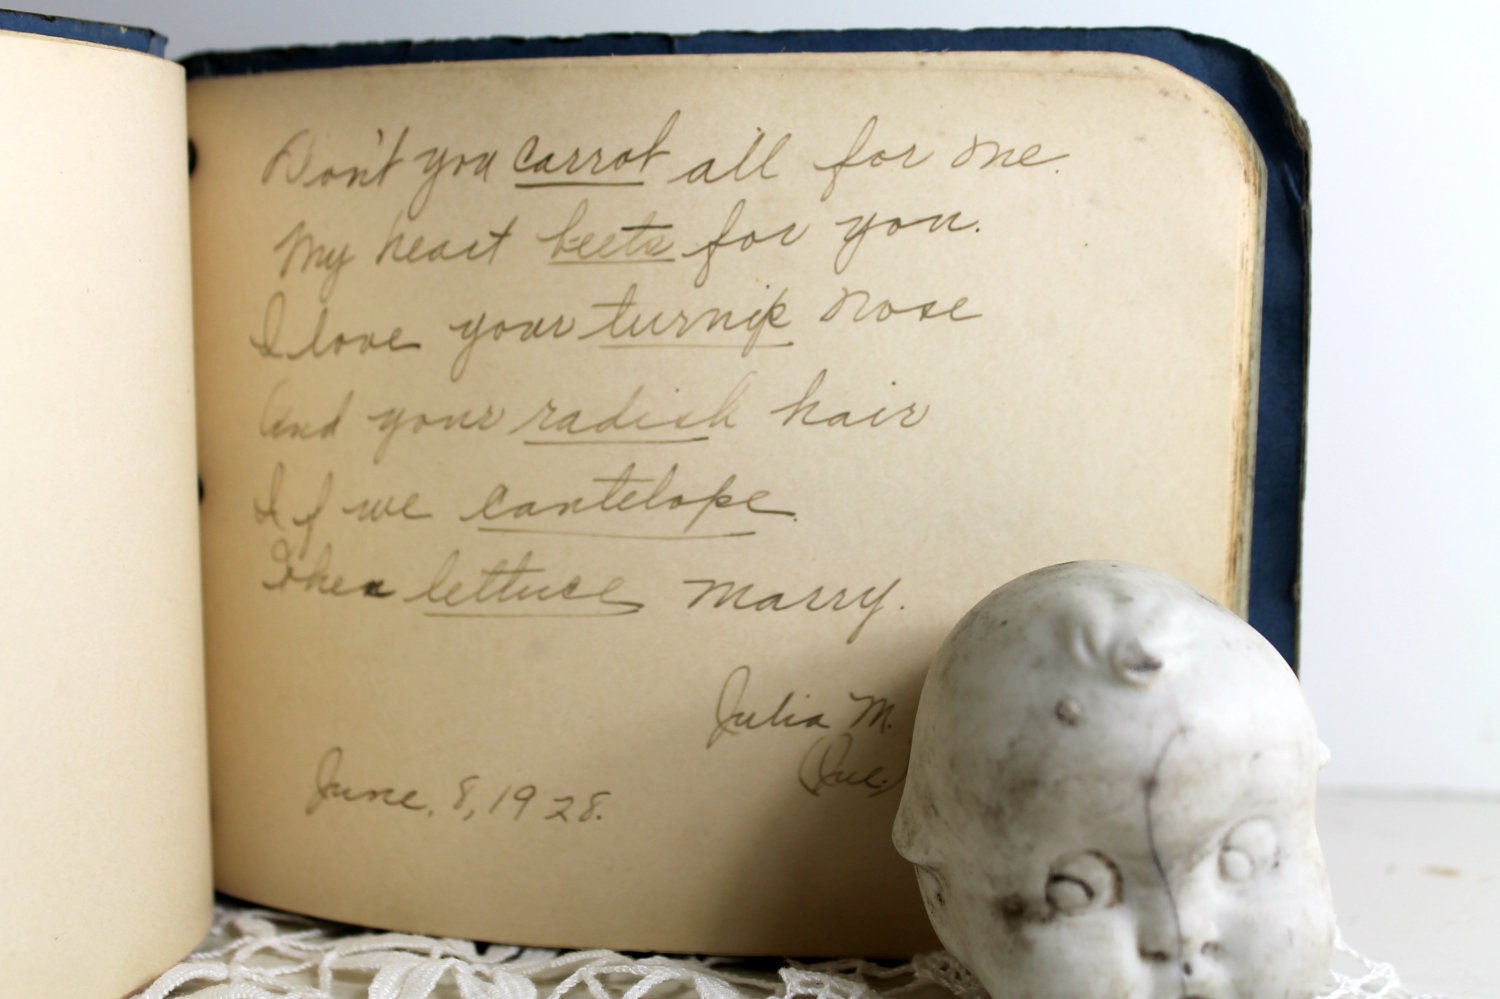 Don't you carrot all for me.
My heart beets for you.
I love your turnip nose
And your radish hair
If we cantelope.
Then lettuce marry.
Julia M.
June, 8, 1928.